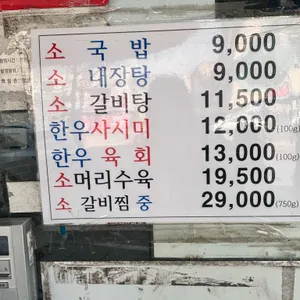 소 국 밥 9,000
소 내장탕 9,000
소 갈비탕 11,500
한우사시미 12,000(100g)
한우 육 회 13,000(100g)
소머리수육 19,500
소 갈비찜 중 29,000(750g)